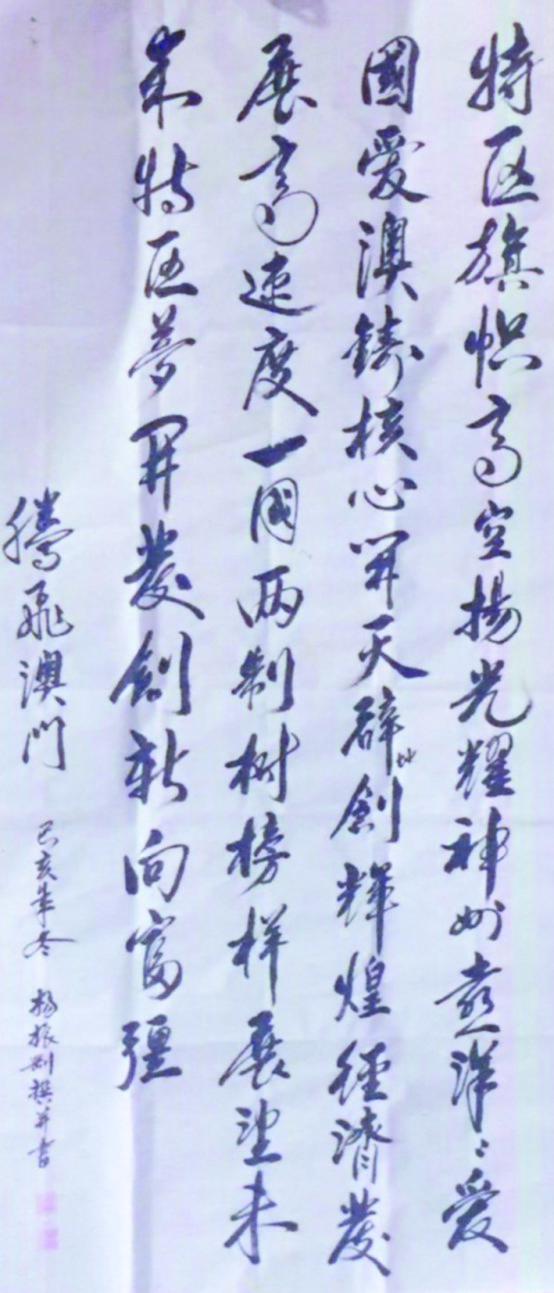 特区旗帜高空揚光耀神州意洋〻愛
國愛澳鑄核心開天辟地創輝煌經濟發
展高速度一国两制树榜样展望未
来特区夢開發創新向富彊
騰飛澳门
己亥年冬 楊振剛撰并書